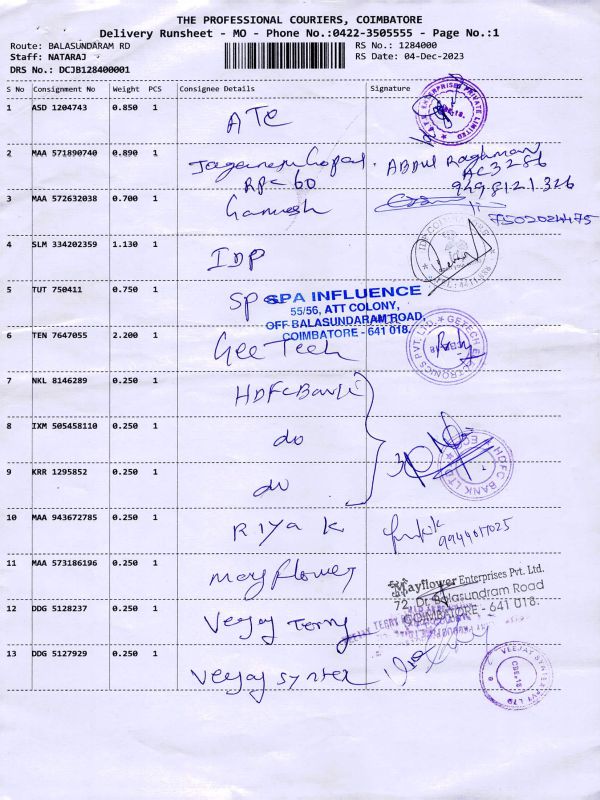 THE PROFESSIONAL COURIERS, COIMBATORE
Delivery Runsheet - MO - Phone No.:0422-3505555 - Page No.:1
Route: BALASUNDARAM RD RS No.: 1284000
Staff: NATARAJ RS Date: 04-Dec-2023
DRS No.: DCJB128400001
S No Consignment No Weight PCS Consignee Details Signature
1 ASD 1204743 0.850 1 ATE
2 MAA 571890740 0.890 1 Abdul Raghman
RPC 60 AC3286
9498121326
3 MAA 572632038 0.700 1 Ganesh
7502024475
4 SLM 334202359 1.130 1 IDP
5 TUT 750411 0.750 1 Spa SPA INFLUENCE
55/56, ATT COLONY,
OFF BALASUNDARAM ROAD,
COIMBATORE - 641 018.
6 TEN 7647055 2.200 1 Gee Tech
GETECH ELECTRONICS PVT. LTD.
7 NKL 8146289 0.250 1 HDFC Bank
8 IXM 505458110 0.250 1 do
HDFC BANK LTD
9 KRR 1295852 0.250 1 do
10 MAA 943672785 0.250 1 Riya K
11 MAA 573186196 0.250 1 Mayflower
Mayflower Enterprises Pvt. Ltd.
72, Dr. Balasundram Road
COIMBATORE - 641 018.
12 DDG 5128237 0.250 1 Veejay Terry
13 DDG 5127929 0.250 1 Veejay Syntex
CBE-18